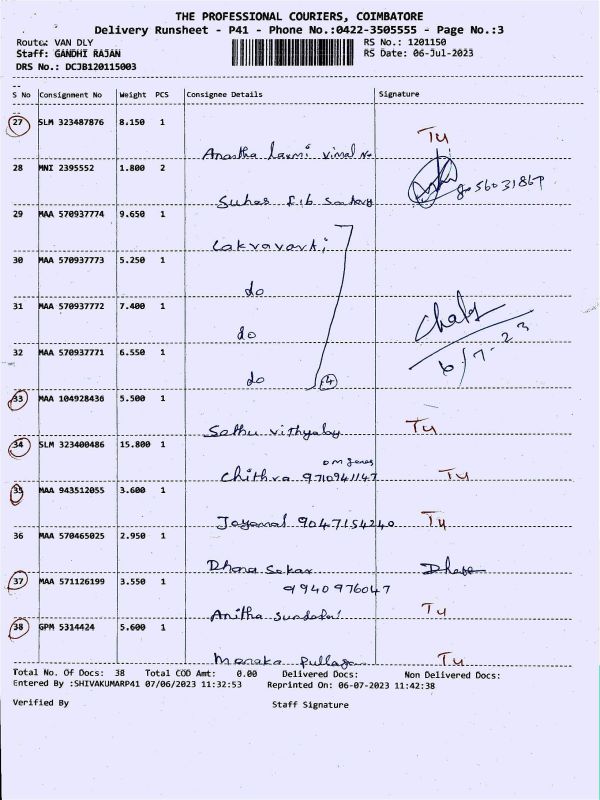 THE PROFESSIONAL COURIERS, COIMBATORE
Delivery Runsheet - P41 - Phone No.:0422-3505555 - Page No.:3
Route: VAN DLY RS No.: 1201150
Staff: GANDHI RAJAN RS Date: 06-Jul-2023
DRS No.: DCJB120115003
S No Consignment No Weight PCS Consignee Details Signature
27 SLM 323487876 8.150 1 Tu
Anantha laxmi vimal
28 MNI 2395552 1.800 2
Suhas fib
29 MAA 570937774 9.650 1
Cakravarti
30 MAA 570937773 5.250 1
do
31 MAA 570937772 7.400 1
do
32 MAA 570937771 6.550 1 6/7-23
do 4
33 MAA 104928436 5.500 1 Tu
Sethu
34 SLM 323400486 15.800 1
Chithra 9710941147 Tu
35 MAA 943512055 3.600 1
Jayamal 9047154240 Tu
36 MAA 570465025 2.950 1
Dhana Sekar
37 MAA 571126199 3.550 1 9940976047
Anitha Tu
38 GPM 5314424 5.600 1
Menaka Tu
Total No. Of Docs: 38 Total COD Amt: 0.00 Delivered Docs: Non Delivered Docs:
Entered By :SHIVAKUMARP41 07/06/2023 11:32:53 Reprinted On: 06-07-2023 11:42:38
Verified By Staff Signature